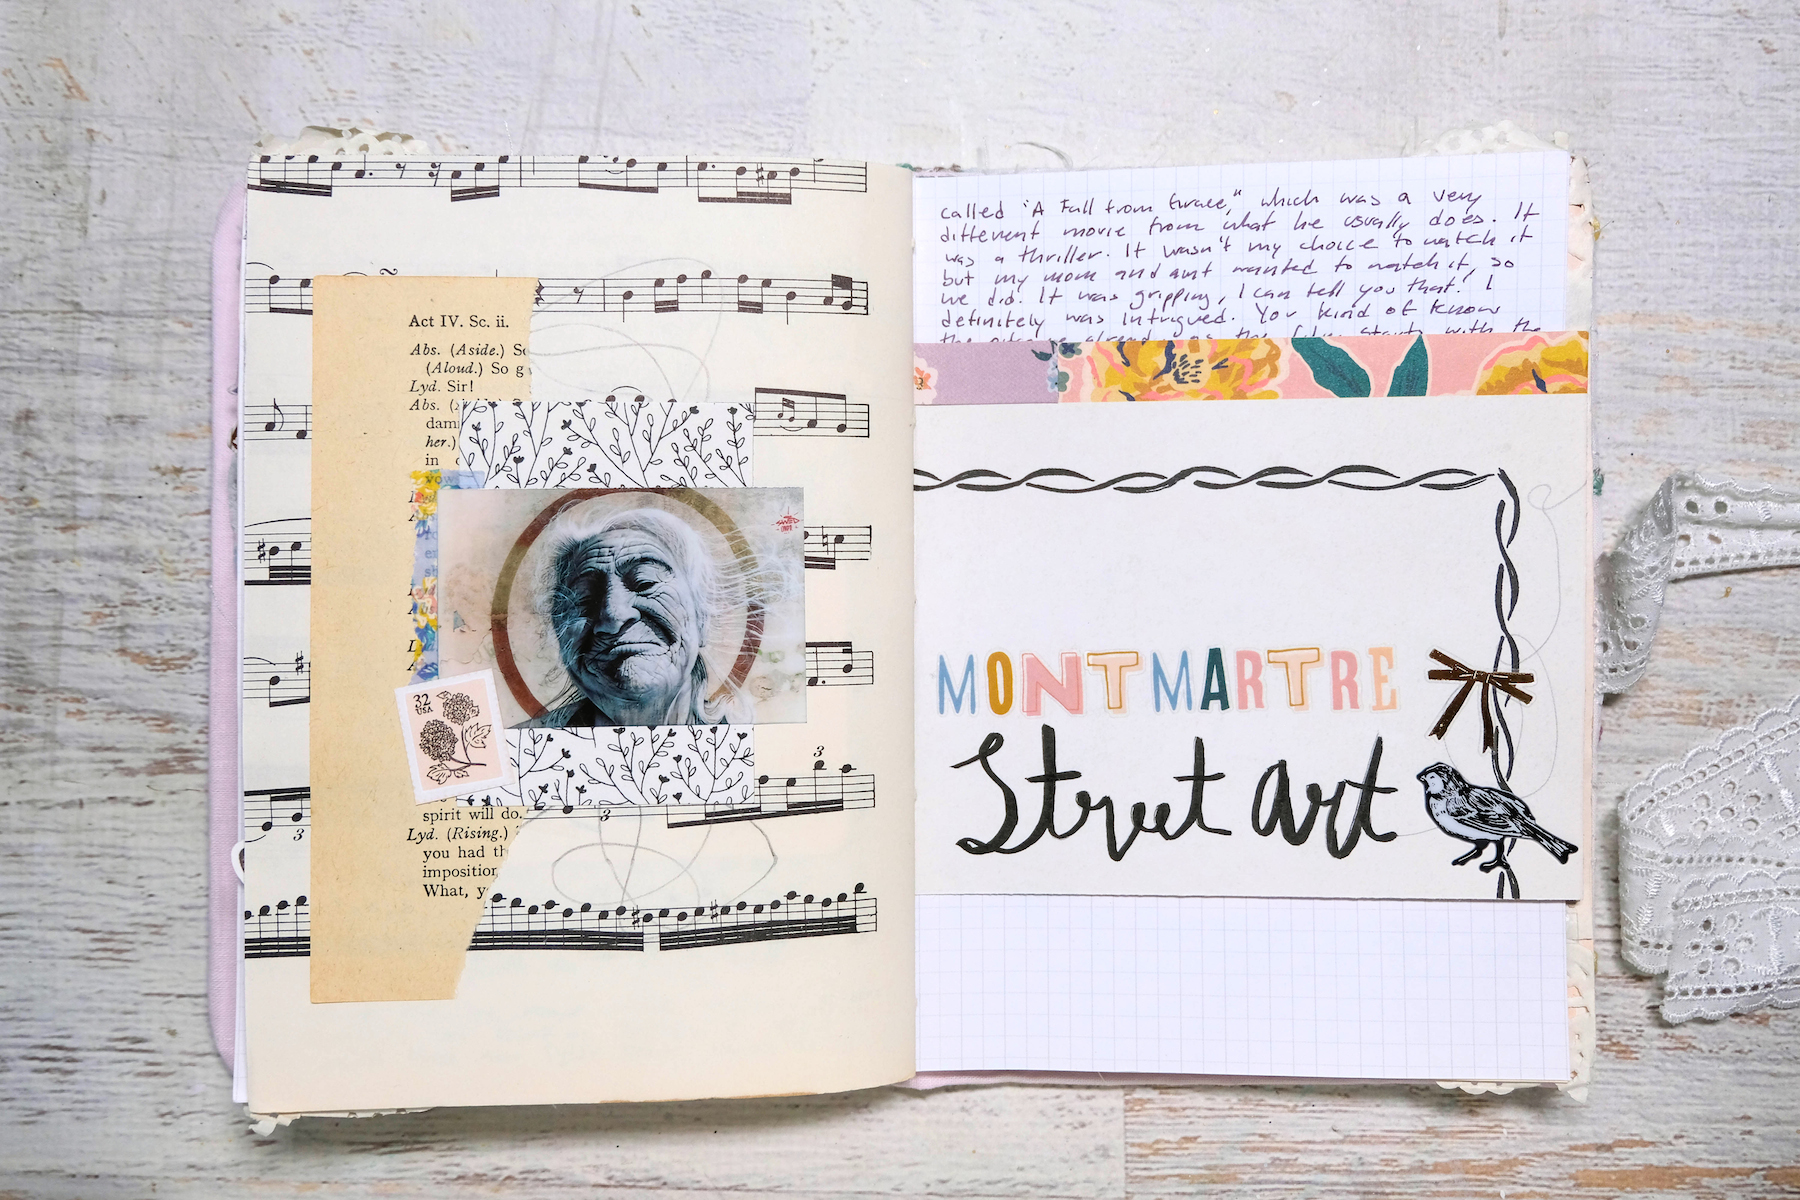 Act IV. Sc. ii.
Abs. (Aside.) So
(Aloud.) So g
Lyd. Sir!
Abs. (
dam
her.)
in
vow
32
USA
3
3
3
spirit will do.
Lyd. (Rising.)
you had th
imposition
What, y
called "A Fall from Grace," which was a very
different movie from what he usually does. It
was a thriller. It wasn't my choice to watch it
but my mom and aunt wanted to watch it, so
we did. It was gripping, I can tell you that! I
definitely was intrigued. You kind of know
the already as the film starts with the
MONTMARTRE
Street Art